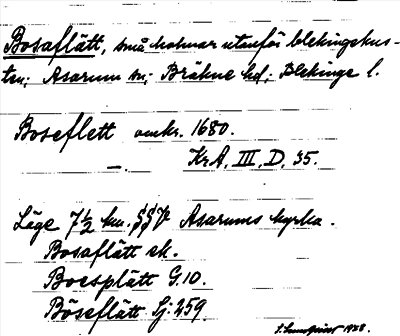 Bosaflätt, små holmar utanför blekingskus-
ten; Asarum sn; Bräkne hd; Blekinge l.
Boseflett omkr. 1680.
—„— KrA, III, D, 35.
Läge 7½ km. SSV Asarums kyrka.
Bosaflätt ek.
Boesplätt G.10.
Böseflätt Sj: 259.
1928.